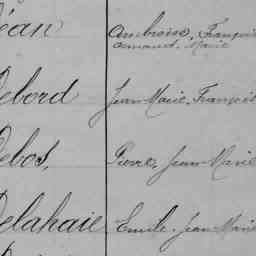 Déan Ambroise, François
Armand, Marie
Debord Jean Marie, François
Debos, Pierre, Jean Marie
Delahaie Emile, Jean Marie